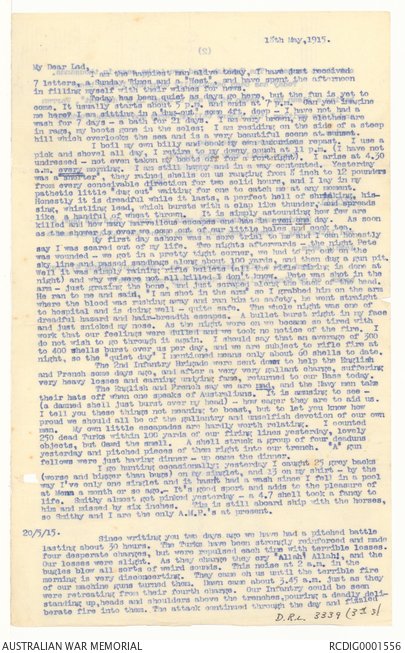 18th May, 1915.
(2)
My Dear Lad,
I am the happiest man alive today, I have just received
7 letters, a Sunday Times and a "Host", and have spent the afternoon
in filling myself with their wishes for news.
Today has been quiet as days go here, but the fun is yet to
come. It usually starts about 5 p.m. and ends at 7 p.m. Can you imagine
me here? I am sitting in a "dug-out", 4ft. deep - I have not had a
wash for 7 days - a bath for 21 days. I am very brown, my clothes are
in rags, my boots gone in the soles; I am residing on the side of a steep
hill which overlooks the sea and is a very beautiful scene at sunset.
I boil my own billy and cook my own luxurious repast. I use a
pick and shovel all day, I retire to my downy couch at 11 p.m. (I have not
undressed - not even taken my boots off for a fortnight). I arise at 4.30
a.m. every morning. I am still happy and in a way contented. Yesterday
was a "snorter", they rained shells on us ranging from 5 inch to 12 pounders
from every conceivable direction for two solid hours, and I lay in my
pathetic little "dug out" waiting for one to catch me at any moment.
Honestly it is dreadful while it lasts, a perfect hell of shrieking, his-
sing, whistling lead, which bursts with a clap like thunder and spreads
like a handful of wheat thrown. It is simply astounding how few are
killed and how many marvellous escapes one has in even one day. As soon
as the shower is over we come out of our little holes and cook tea.
My first day ashore was a sore trial to me and I can honestly
say I was scared out of my life. Two nights afterwards - the night Pete
was wounded - we got in a pretty tight corner, we had to go out on the
sky line and passed sandbags along about 100 yards, and then dug a gun pit.
Well it was simply raining rifle bullets (all the rifle firing is done at
night) and why we were not all killed I don't know. Pete was shot in the
arm - just grazing the bone, and just scraped along the back of the head.
He ran to me and said, "I am shot in the arm" so I grabbed him on the arm
where the blood was rushing away and ran him to safety, he went straight
to hospital and is doing well - quite safe. The whole night was one of
dreadful hazard and hair-breadth escapes. A bullet burst right in my face
and just snicked my nose. As the night wore on we became so tired with
work that our feelings were drilled and we took no notice of the fire. I
do not wish to go through it again. I should say that an average of 300
to 400 shells burst over us per day, and we are subject to rifle fire at
night, so the "quiet day" I mentioned means only about 60 shells to date.
The 2nd Infantry Brigade were sent down to help the English
and French some days ago, and after a very very gallant charge, suffering
very heavy losses and earning undying fame, returned to our Base today.
The English and French say we are mad, and the Navy men take
their hats off when one speaks of Australians. It is amusing to see -
(a damned shell just burst over my head) - how eager they are to aid us.
I tell you these things not meaning to boast, but to let you know how
proud we should all be of the gallantry and unselfish devotion of our own
men. My own little escapades are hardly worth relating. I counted
250 dead Turks within 100 yards of our firing lines yesterday, lovely
objects, but damn the smell. A shell struck a group of four deaduns
yesterday and pitched pieces of them right into our trench. "A" gun
fellows were just having dinner - up came the dinner.
I go hunting occasionally; yesterday I caught 25 grey backs
(worse and bigger than bugs) on my singlet, and 13 on my shirt - by the
way I've only one singlet and it hasn't had a wash since I fell in a pool
at Mena a month or so ago. It's good sport and adds to the pleasure of
life. Smithy almost got pinked yesterday - a 4.7 shell took a fancy to
him and missed by six inches. Vim is still aboard ship with the horses,
so Smithy and I are the only A.M.P.'s at present.
20/5/15.
Since writing you two days ago we have had a pitched battle
lasting about 30 hours. The Turks have been strongly reinforced and made
four desperate charges, but were repulsed each time with terrible losses.
Our losses were slight. As they charge they cry "Allah! Allah!, and the
bugles blow all sorts of weird sounds. This noise at 2 a.m. in the
morning is very disconcerting. They came on us until the terrible fire
of our machine guns turned them. Dawn came about 3.45 a.m. just as they
were retreating from their fourth charge. Our Infantry could be seen
standing up, heads and shoulders above the trenches, pouring a deadly deli-
berate fire into them. The attack continued through the day and fizzled
D.R.L. 3339 (3 of 3)
AUSTRALIAN WAR MEMORIAL
RCDIG0001556